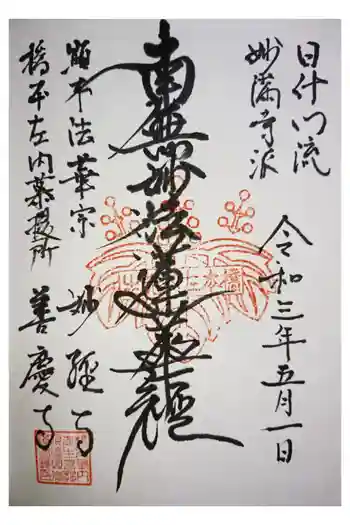 日什門流
妙満寺派
令和三年五月一日
南無妙法蓮華経
顕本法華宗
妙経寺
橋本左内菩提所
善慶寺